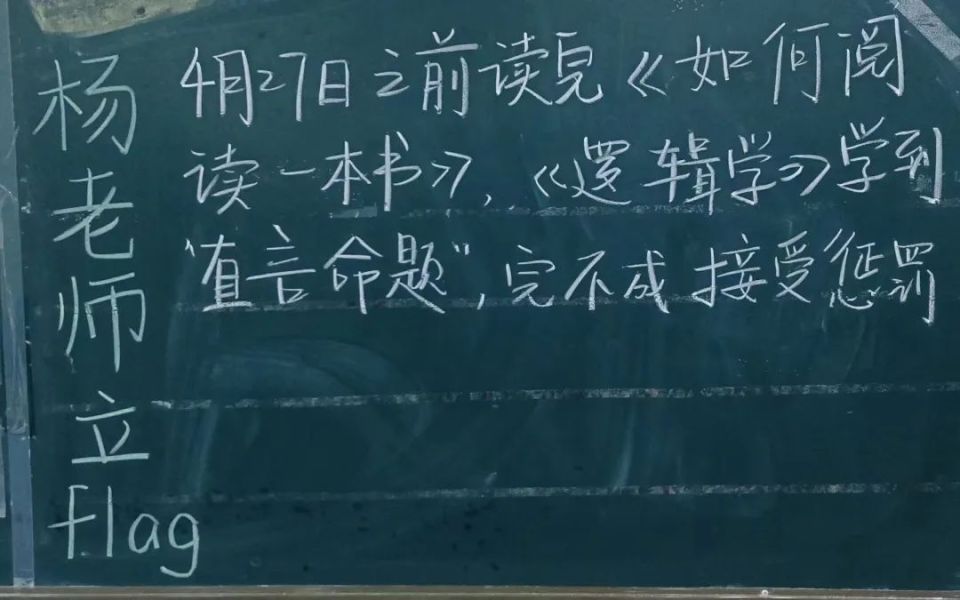 杨老师立flag
4月27日之前读完《如何阅
读一本书》,《逻辑学》学到
"直言命题",完不成接受惩罚